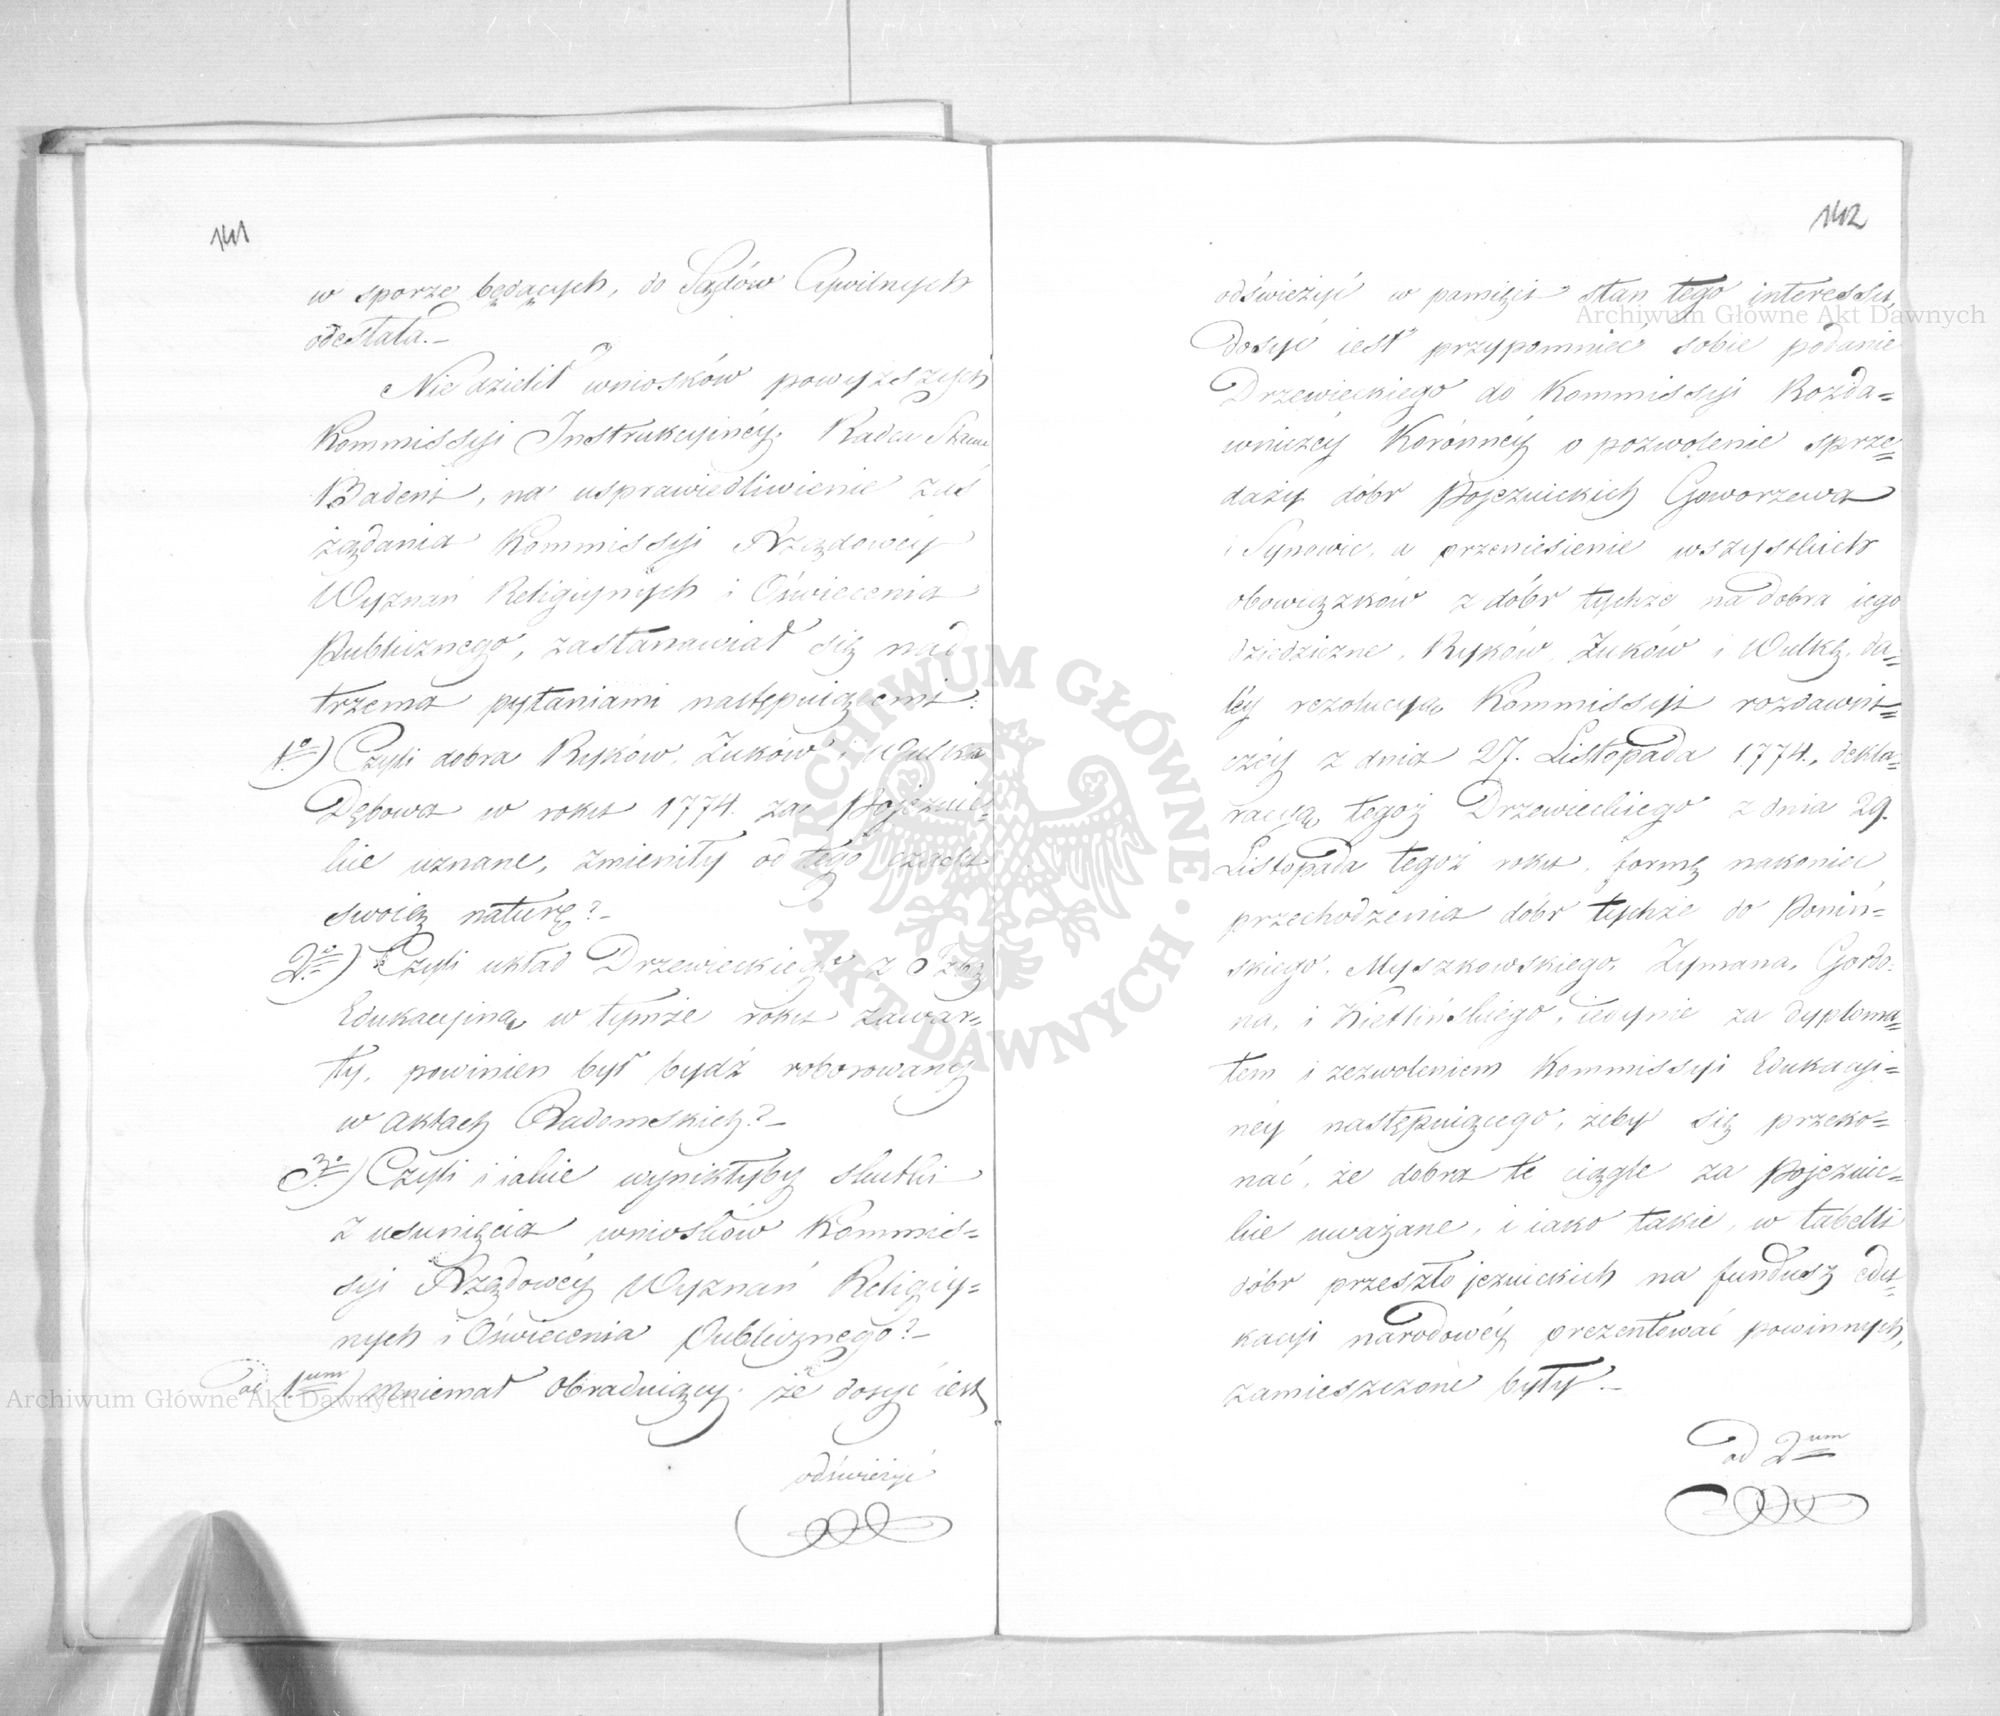 141
w sporze będących, do Sądów Cywilnych
odesłała.—
Nie dzielił wniosków powyższych
Kommissyi Instrukcyinéy. Radca Stanu
Badeni, na usprawiedliwienie zaś
żądania Kommissyi Rządowéy
Wyznań Religiynych i Oświecenia
Publicznego, zastanawiał się nad
trzema pytaniami następuiącemi:
1o) Czyli dobra Ryków, Żuków i Wulka
Dębowa w roku 1774. za Pojezuic-
kie uznane, zmieniły od tego czasu
swoię naturę?—
2o) Czyli układ Drzewieckiego z Izbą
Edukacyiną w tymże roku zawar=
ty, powinien był bydź roborowany
w aktach Radomskich?—
3o) Czyli i iakie wynikłyby skutki
z usunięcia wniosków Kommis=
syi Rządowéy Wyznań Religiy=
nych i Oświecenia Publicznego?—
ad 1um) Mniemał Obraduiący, że dosyć iest
odświeżyć
142
odświeżyć w pamięci stan tego interessu,
dosyć iest przypomnieć sobie podanie
Drzewieckiego do Kommissyi Rozda=
wniczéy Koronnéy o pozwolenie sprze=
daży dóbr Pojezuickich Goworzewa
i Synowic, a przeniesienie wszystkich
obowiązków z dóbr tychże na dobra iego
dziedziczne, Ryków, Żuków i Wulkę, da=
léy rezolucyą Kommissyi rozdawni=
czéy z dnia 27. Listopada 1774., dekla=
racyą tegoż Drzewieckiego z dnia 29.
Listopada tegoż roku, formę nakoniec
przechodzenia dóbr tychże do Poniń=
skiego, Myszkowskiego, Zymana, Gordo=
na, i Kietlińskiego, iedynie za dyploma=
tem i zezwoleniem Kommissyi Edukacyi=
néy następuiącego, żeby się przeko=
nać, że dobra te ciągle za Pojezuic=
kie uważane, i iako takie, w tabelli
dóbr przeszło jezuickich na fundusz edu=
kacyi narodowéy prezentować powinnych,
zamieszczone były.—
ad 2um
Archiwum Główne Akt Dawnych
Archiwum Główne Akt Dawnych
ARCHIWUM GŁÓWNE · AKT DAWNYCH ·